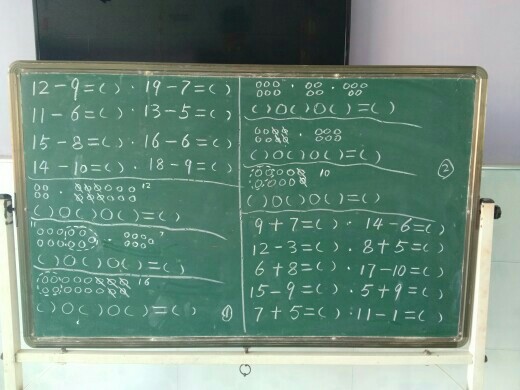 12-9=( ) · 19-7=( )
11-6=( ) · 13-5=( )
15-8=( ) · 16-6=( )
14-10=( ) · 18-9=( )
12
( )○( )○( )=( )
11
( )○( )○( )=( )
16
( )○( )○( )=( )
①
( )○( )○( )=( )
( )○( )○( )=( )
10
②
( )○( )○( )=( )
9+7=( ) · 14-6=( )
12-3=( ) · 8+5=( )
6+8=( ) · 17-10=( )
15-9=( ) · 5+9=( )
7+5=( ) : 11-1=( )